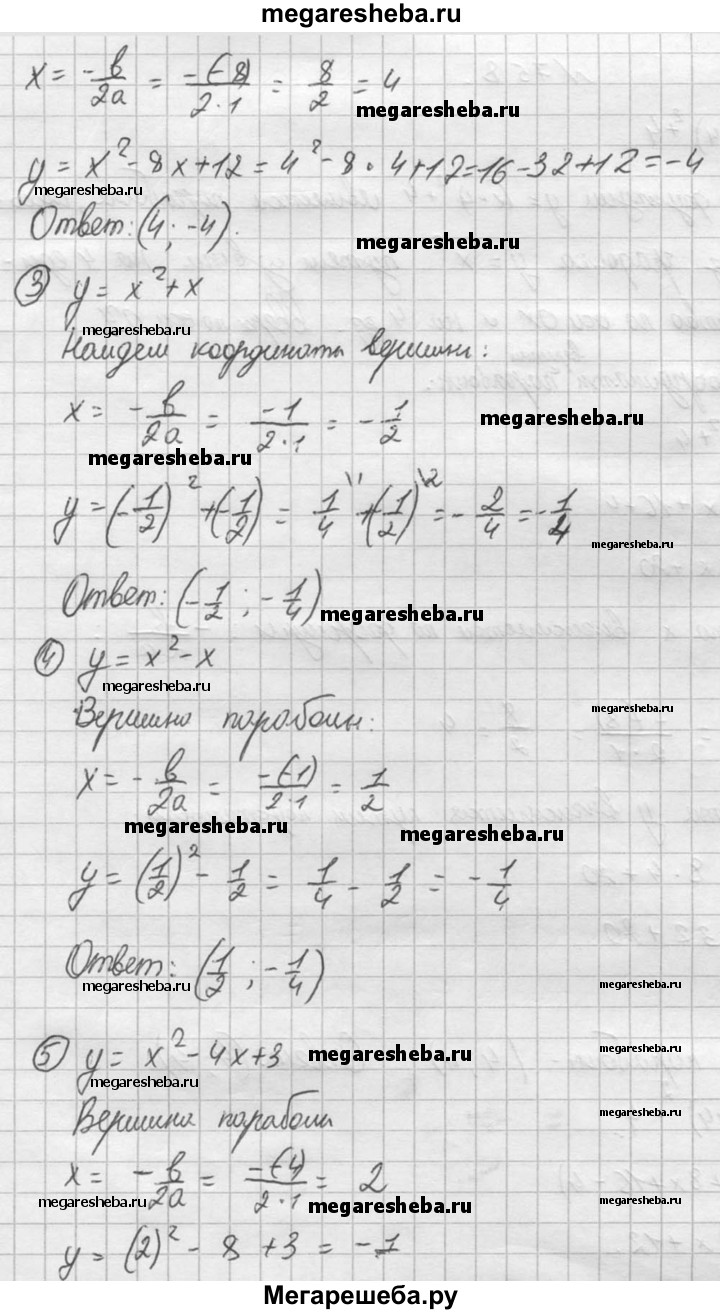 megaresheba.ru
x = -b/2a = -(-8)/2·1 = 8/2 = 4
megaresheba.ru
y = x² - 8x + 12 = 4² - 8 · 4 + 12 = 16 - 32 + 12 = -4
megaresheba.ru
Ответ: (4 ; -4).
megaresheba.ru
③ y = x² + x
megaresheba.ru
Найдем координаты вершины:
x = -b/2a = -1/2·1 = -1/2
megaresheba.ru
megaresheba.ru
y = (-1/2)² + (-1/2) = 1/4 \1 + (-1/2) \2 = -2/4 = -1/4
megaresheba.ru
Ответ: (-1/2 ; -1/4)
megaresheba.ru
④ y = x² - x
megaresheba.ru
Вершина параболы:
x = -b/2a = -(-1)/2·1 = 1/2
megaresheba.ru
megaresheba.ru
y = (1/2)² - 1/2 = 1/4 - 1/2 = -1/4
Ответ: (1/2 ; -1/4)
megaresheba.ru
megaresheba.ru
⑤ y = x² - 4x + 3
megaresheba.ru
megaresheba.ru
Вершина параболы
megaresheba.ru
x = -b/2a = -(-4)/2·1 = 2
megaresheba.ru
megaresheba.ru
megaresheba.ru
y = (2)² - 8 + 3 = -1
Мегарешеба.ру